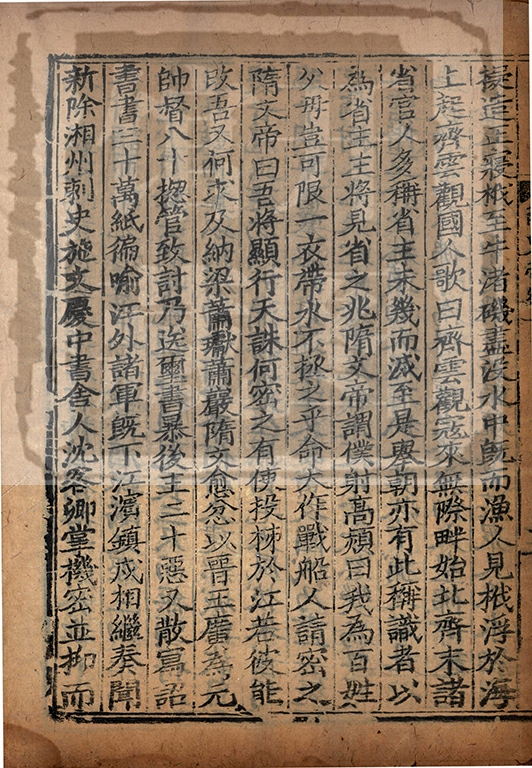 擬造正寢栰至牛渚磯盡沒水中既而漁人見栰浮於海
上起齊雲觀國人歌曰齊雲觀寇來無際畔始北齊末諸
省官人多稱省主未幾而滅至是舉朝亦有此稱識者以
為省主主將見省之兆隋文帝謂僕射高熲曰我為百姓
父母豈可限一衣帶水不拯之乎命大作戰船人請密之
隋文帝曰吾將顯行天誅何密之有使投柹於江若彼能
改吾又何求及納梁蕭瓛蕭巖隋文愈忿以晉王廣為元
帥督八十揔管致討乃送璽書暴後主二十惡又散寫詔
書書三十萬紙徧喻江外諸軍既下江濱鎮戍相繼奏聞
新除湘州剌史施文慶中書舍人沈客卿掌機密並抑而